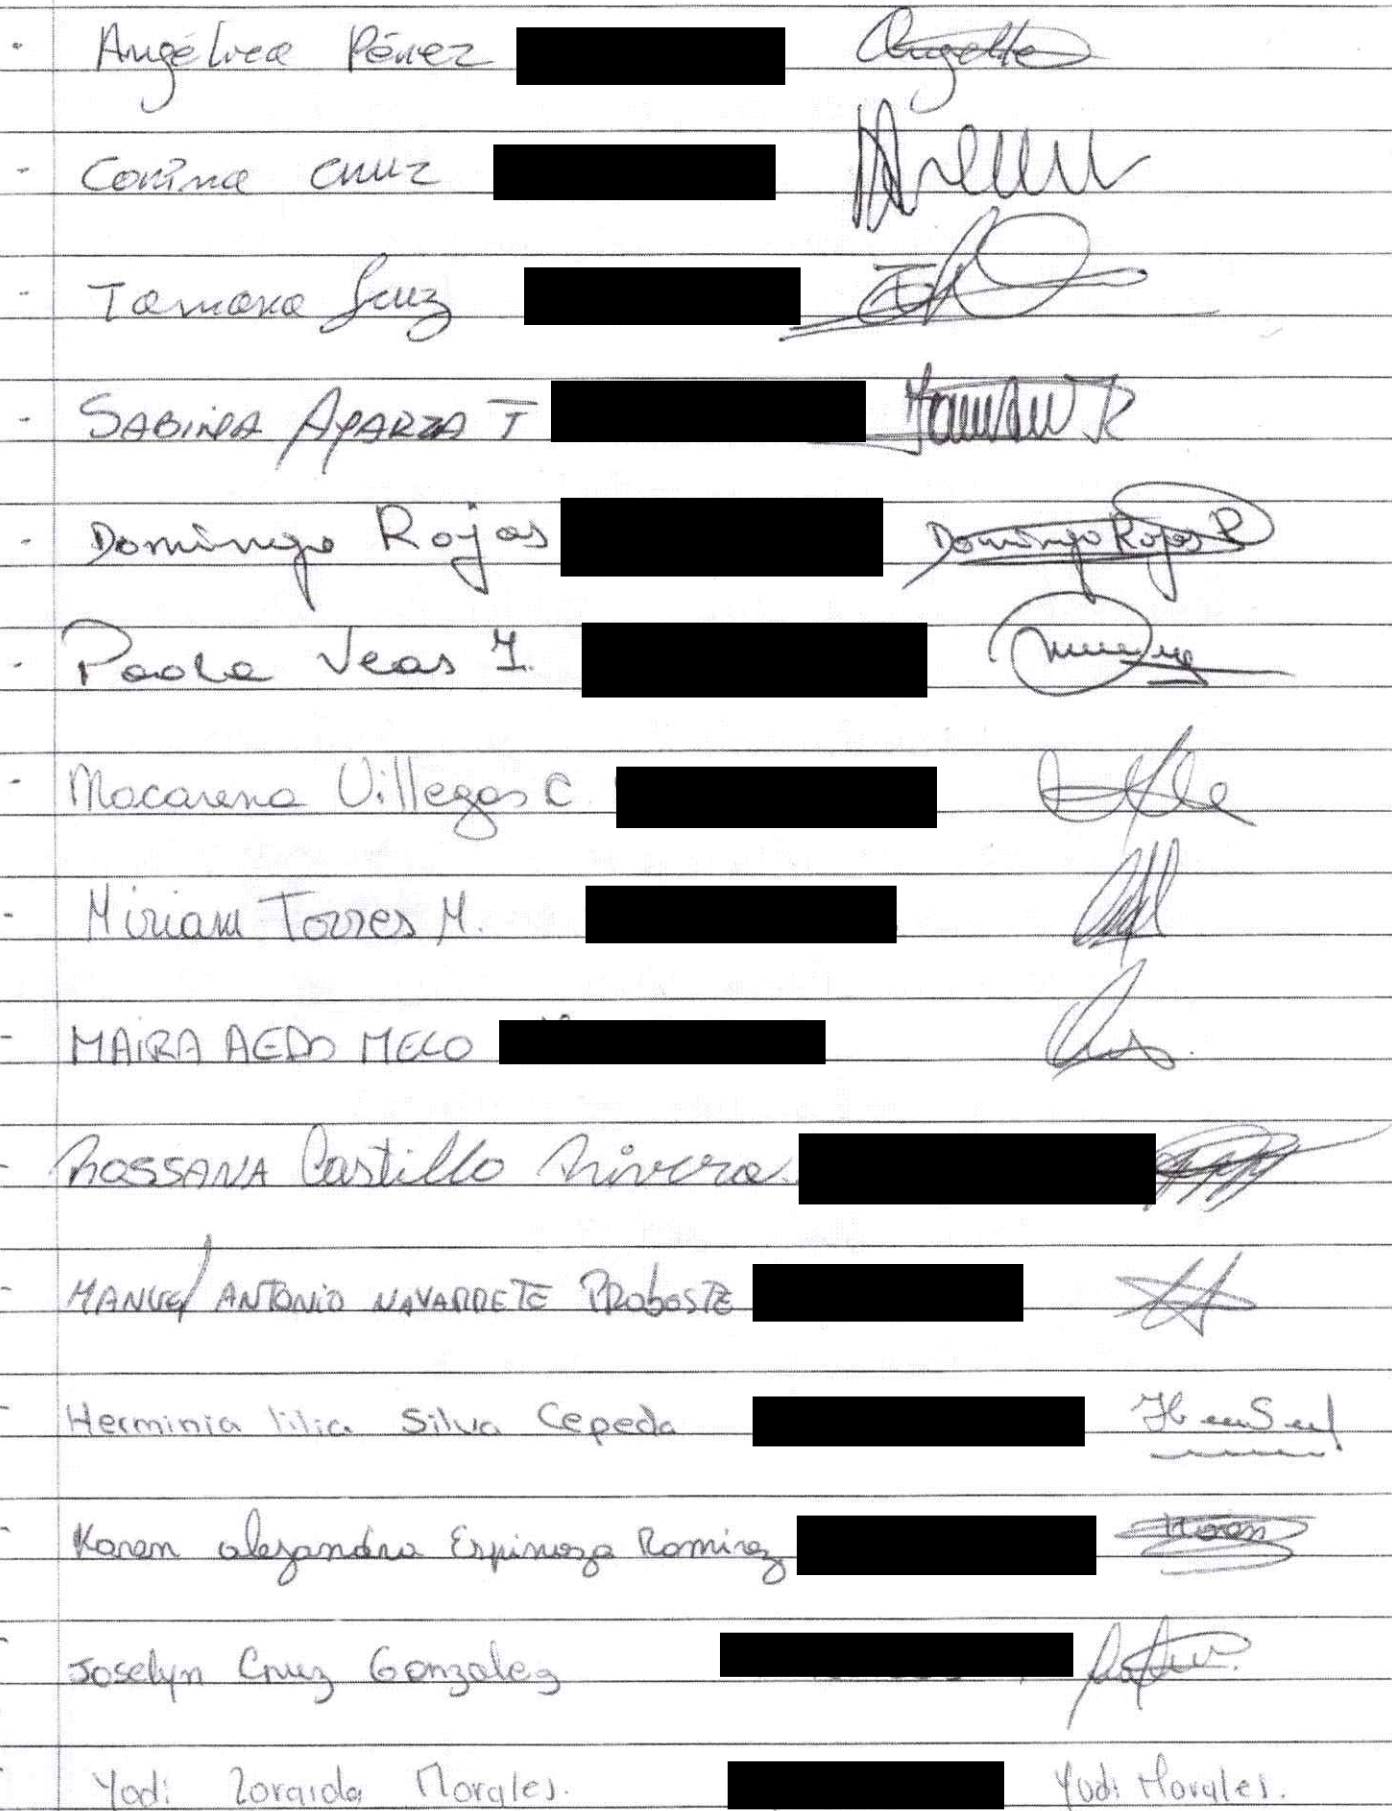 - Angélica Pérez
- Corina Cruz
- Tamara Cruz
- SABINA APARZA T
- Domingo Rojas Domingo Rojas R
- Paola Veas I.
- Macarena Villegas C
- Miriam Torres M.
- MAIRA AEDO MELO
- ROSSANA Castillo Rivera.
- MANUEL ANTONIO NAVARRETE PROBOSTE
- Herminia lilia Silva Cepeda
- Karen alejandra Espinoza Ramirez Karen
- Joselyn Cruz Gonzalez
- Yodi Zoraida Morales. Yodi Morales.